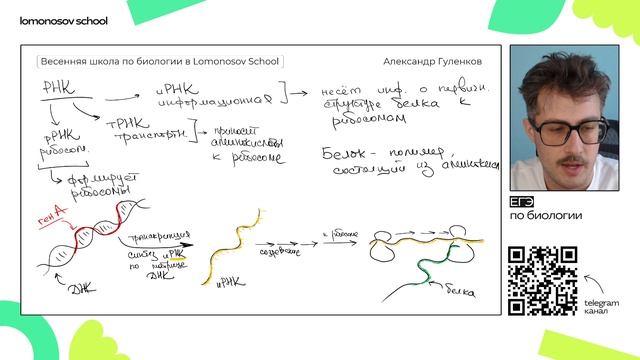 lomonosov school
Весенняя школа по биологии в Lomonosov School
Александр Гуленков
РНК
иРНК
информационная
несёт инф. о первичн.
структуре белка к
рибосомам
тРНК
транспортн.
приносит
аминокислоты
к рибосоме
рРНК
рибосом.
формирует
рибосомы
Белок - полимер,
состоящий из аминокисл
ген А
транскрипция
синтез иРНК
по матрице
ДНК
ДНК
иРНК
созревание
к рибосоме
белка
ЕГЭ
по биологии
telegram
канал